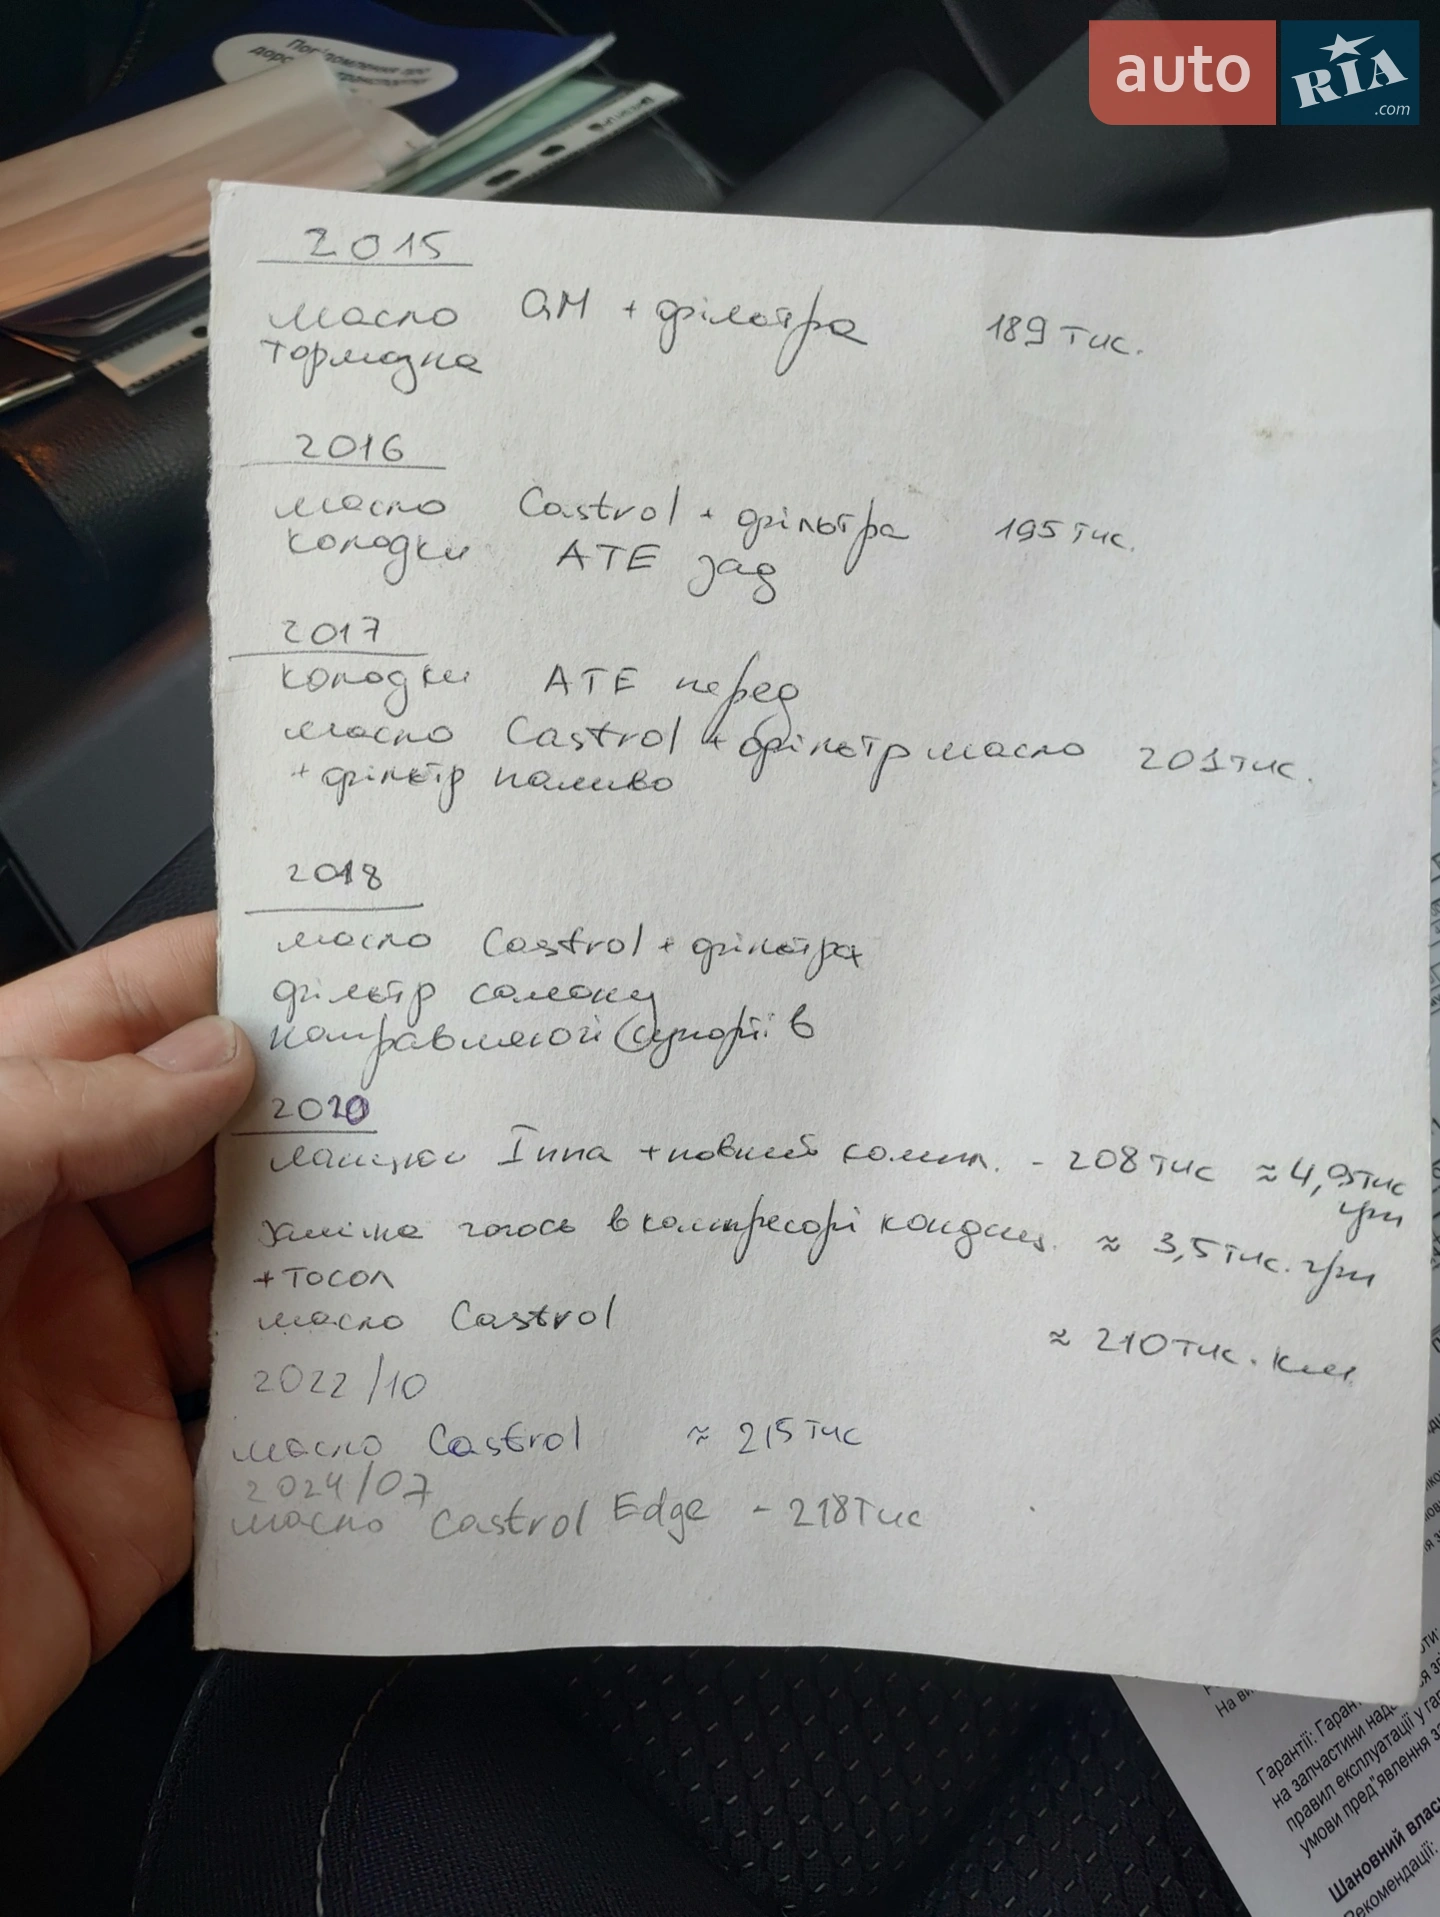 auto RIA.com
2015
масло GM + фільтра 189 тис.
тормозна
2016
масло Castrol + фільтра 195 тис.
колодки ATE зад
2017
колодки ATE перед
масло Castrol + фільтр масло 201 тис.
+ фільтр паливо
2018
масло Castrol + фільтра
фільтр салону
направляючі супорті в
2020
ланцюг + новий компл. - 208 тис ≈ 4,9 тис
грн
заміна в компресорі кондиц. ≈ 3,5 тис. грн
+ тосол
масло Castrol
≈ 210 тис. км
2022/10
масло Castrol ≈ 215 тис
2024/07
масло Castrol Edge - 218 тис
Гарантії: Гарант
на запчастини над
правил експлуатації у га
умови пред"явлення
Шановний влас
Рекомендації: